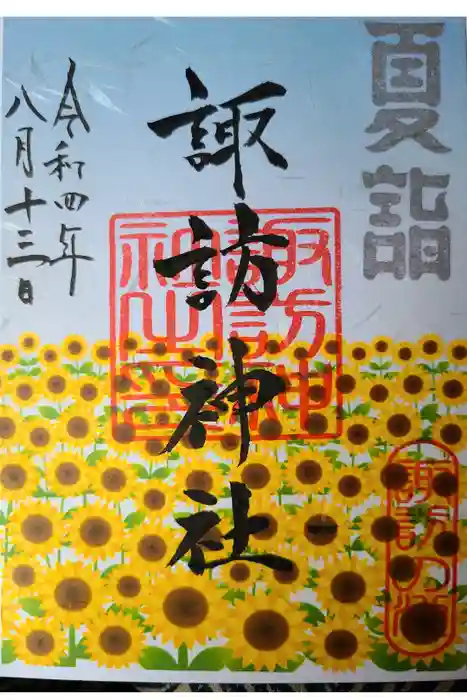 夏詣
諏訪神社
令和四年
八月十三日
諏訪神
社之印